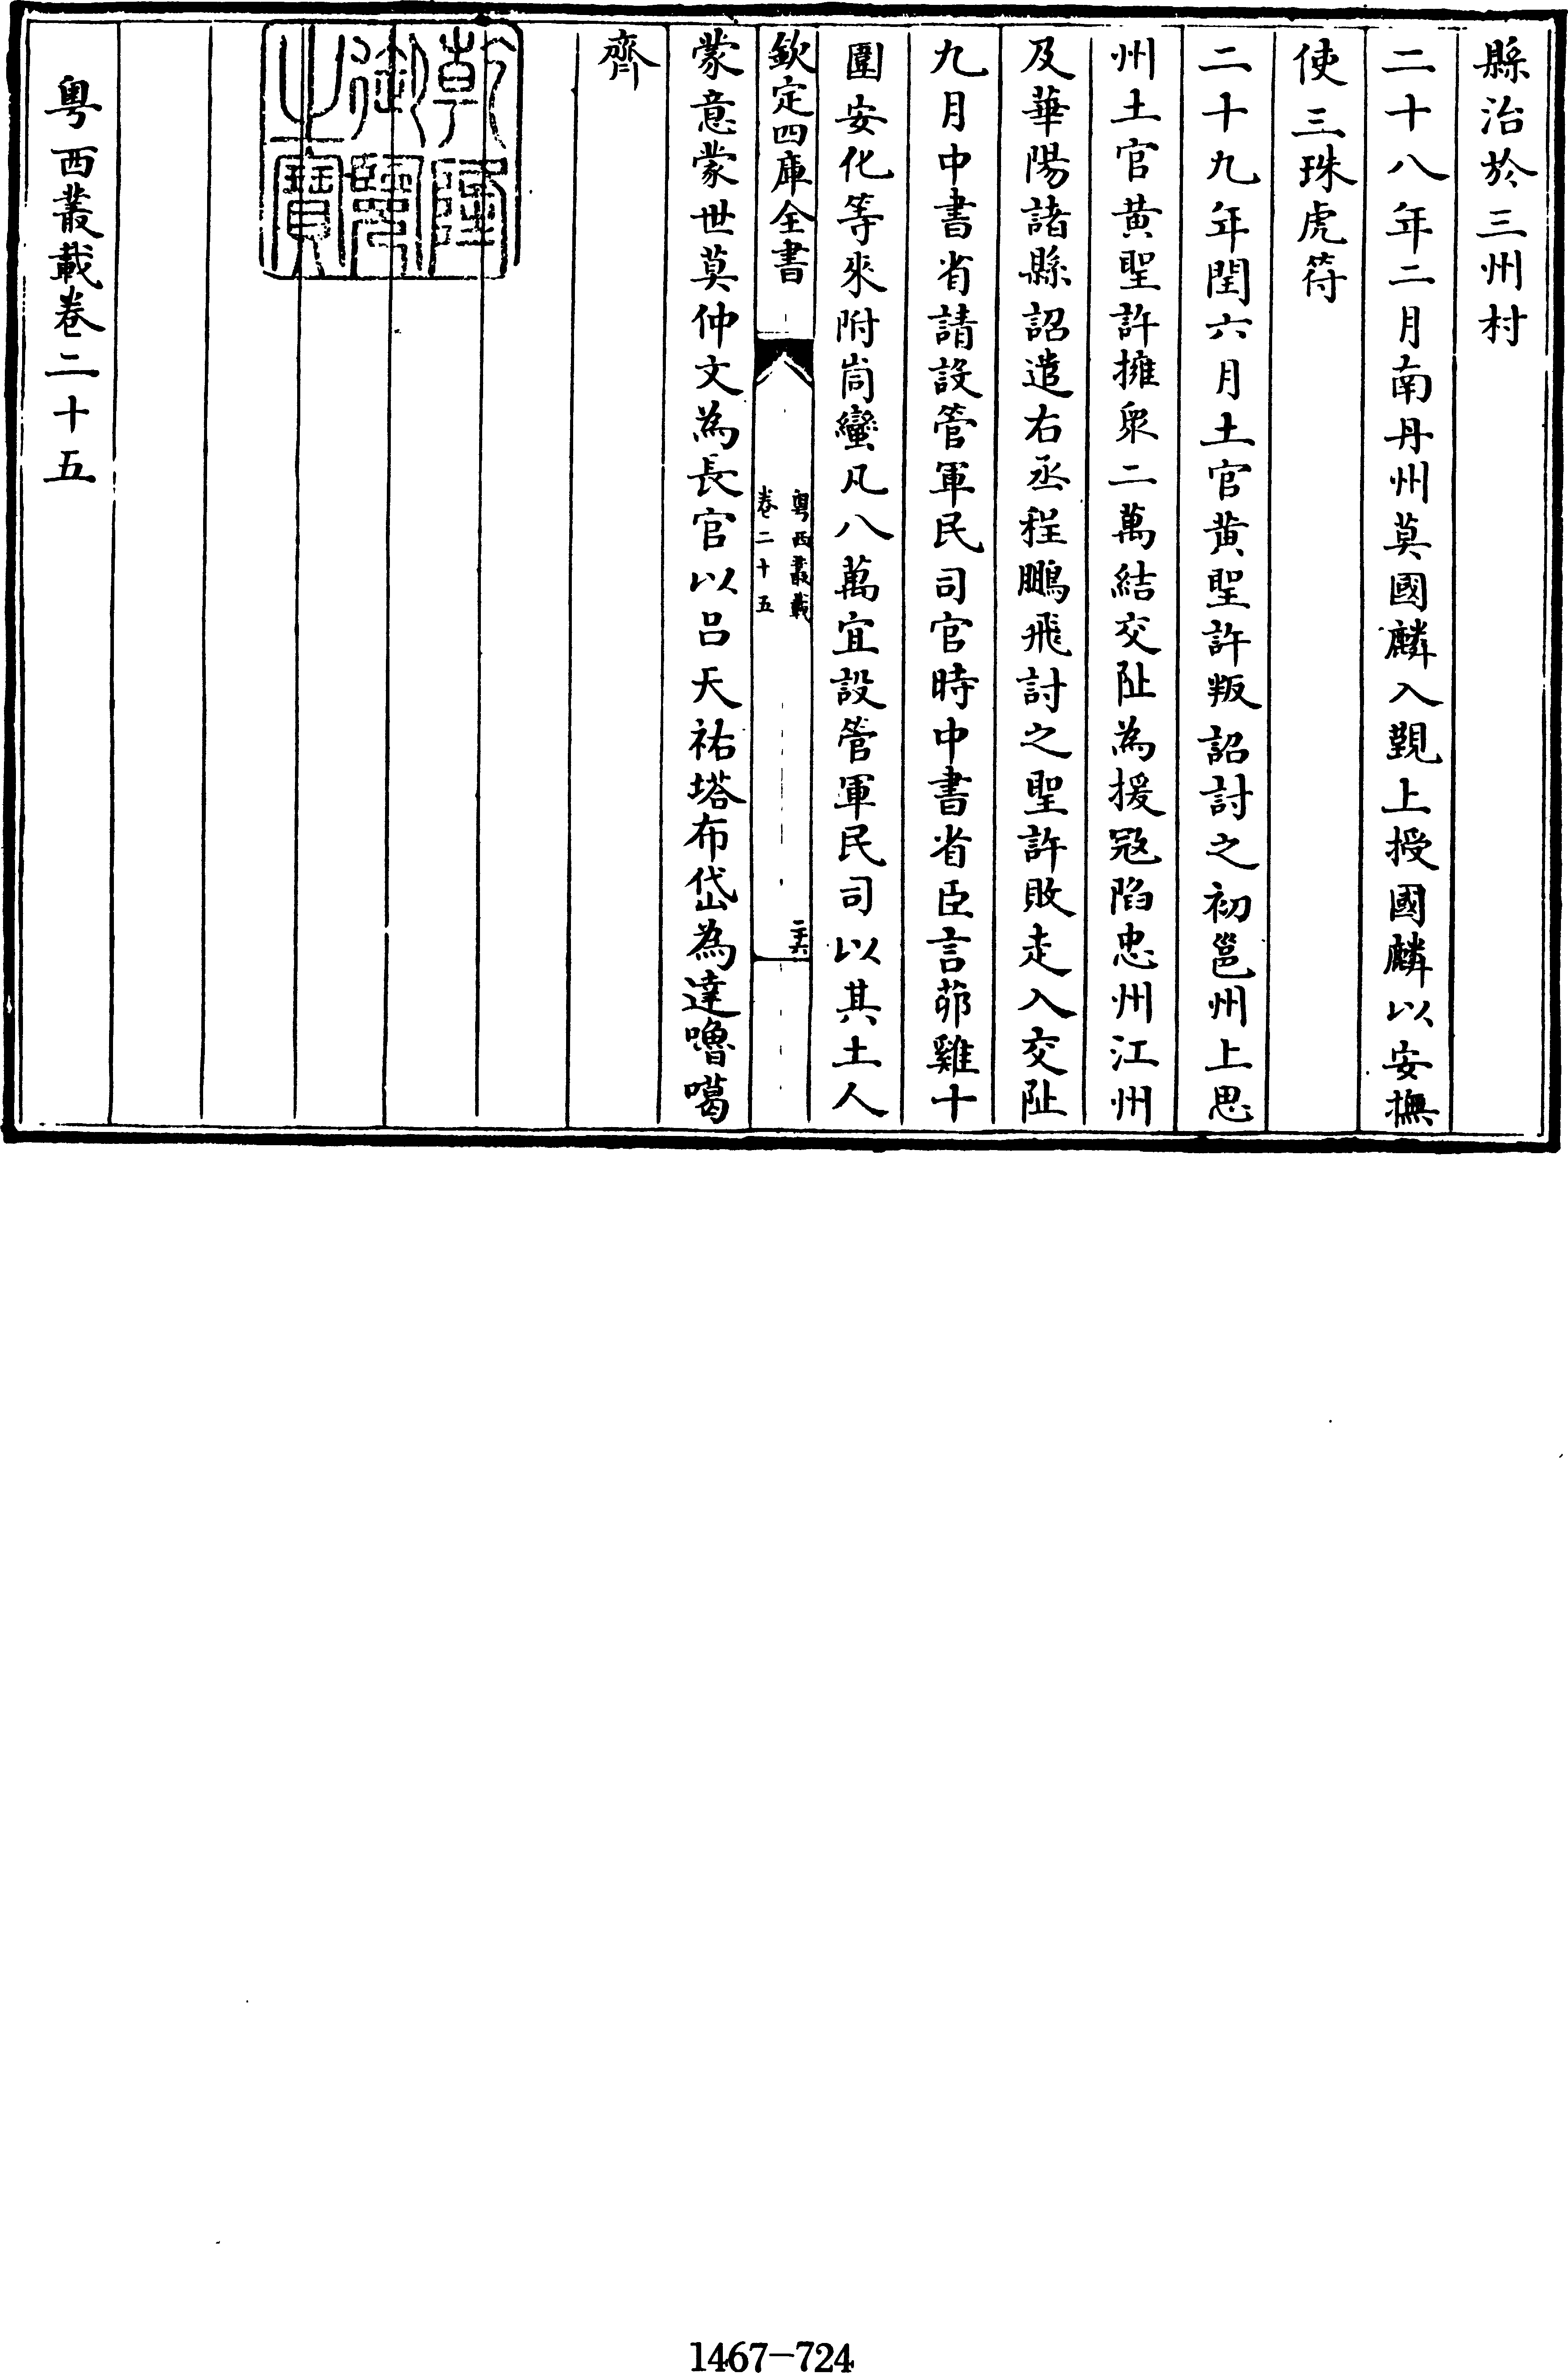 縣治於三州村
二十八年二月南丹州莫國麟入覲上授國麟以安撫
使三珠虎符
二十九年閏六月土官黄聖許叛詔討之初邕州上思
州土官黄聖許擁衆二萬結交阯為援冦陷忠州江州
及華陽諸縣詔遣右丞程鵬飛討之聖許敗走入交阯
九月中書省請設管軍民司官時中書省臣言茆雞十
圍安化等來附峝蠻凡八萬宜設管軍民司以其土人
欽定四庫全書
粤西叢載
卷二十五
二十六
蒙意蒙世莫仲文為長官以吕天祐塔布岱為達嚕噶
齊
乾隆御覽之寶
粤西叢載卷二十五
1467-724